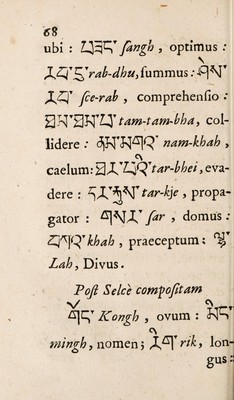 68
ubi : བཟང་ ſangh , optimus :
རབ་ཏུ་ rab-dhu, ſummus : ཤེས་
རབ་ ſce-rab , comprehenſio :
tam-tam-bha , col-
lidere : ནམ་མཁའ་ nam-khah ,
caelum: ཐར་པའི་ tar-bhei, eva-
dere : tar-kje , propa-
gator : གསར་ ſar , domus :
བཀའ་ khah , praeceptum : ལྷ་
Lah , Divus .
Poſt Selcè compoſitam
Kongh , ovum : མིང་
mingh , nomen ; རིག་ rik , lon-
gus :